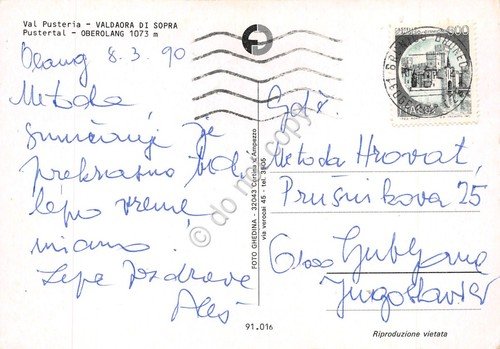 Val Pusteria - VALDAORA DI SOPRA
Pustertal - OBEROLANG 1073 m
Olang 8.3.90
Metoda,
smučanje je
prekrasno tudi
lepo vreme
imamo.
Lepe pozdrave
Aleš
FOTO GHEDINA - 32043 Cortina d'Ampezzo
via verocai 45 - tel. 3606
do not copy
500
Metoda Hrovat,
Prušnikova 25
61000 Ljubljana
Jugoslavia
91.016
Riproduzione vietata